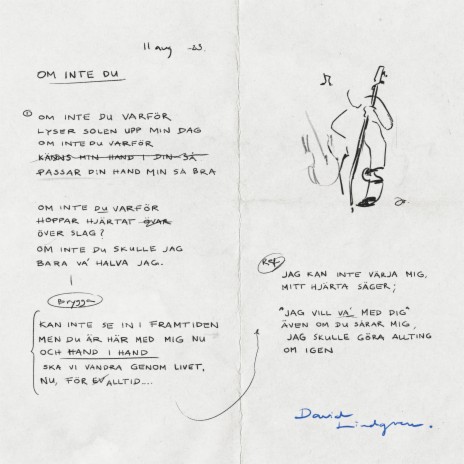 11 aug -23.
OM INTE DU
① OM INTE DU VARFÖR
LYSER SOLEN UPP MIN DAG
OM INTE DU VARFÖR
KÄNNS MIN HAND I DIN SÅ
PASSAR DIN HAND MIN SÅ BRA
OM INTE DU VARFÖR
HOPPAR HJÄRTAT ÖVAR
ÖVER SLAG?
OM INTE DU SKULLE JAG
BARA VA' HALVA JAG.
Brygga
KAN INTE SE IN I FRAMTIDEN
MEN DU ÄR HÄR MED MIG NU
OCH HAND I HAND
SKA VI VANDRA GENOM LIVET,
NU, FÖR EVALLTID....
Ref.
JAG KAN INTE VÄRJA MIG,
MITT HJÄRTA SÄGER;
"JAG VILL VA' MED DIG"
ÄVEN OM DU SÅRAR MIG,
JAG SKULLE GÖRA ALLTING
OM IGEN
David
Lindgren.